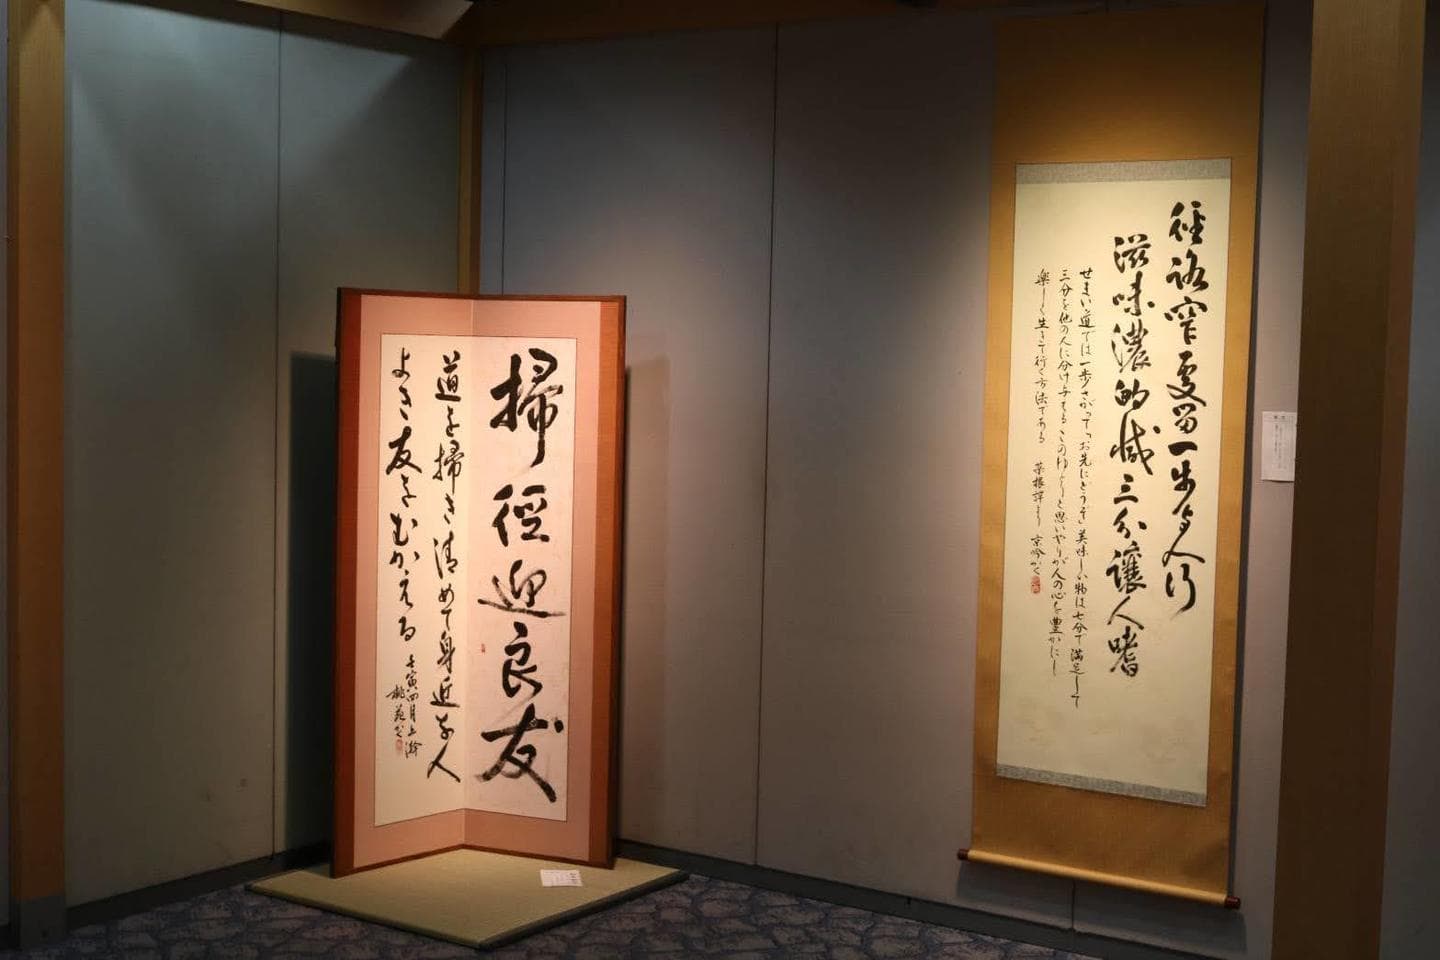 掃径迎良友
道を掃き清めて身近な人
よき友をむかえる
壬寅四月上澣
桃苑书
径路窄処留一歩与人行
滋味濃的減三分譲人嗜
せまい道では一歩さがって「お先にどうぞ」美味しい物は七分で満足して
三分を他の人に分け与えるこのゆとりと思いやりが人の心を豊かにし
楽しく生きて行く方法である 菜根譚より 京吟かく